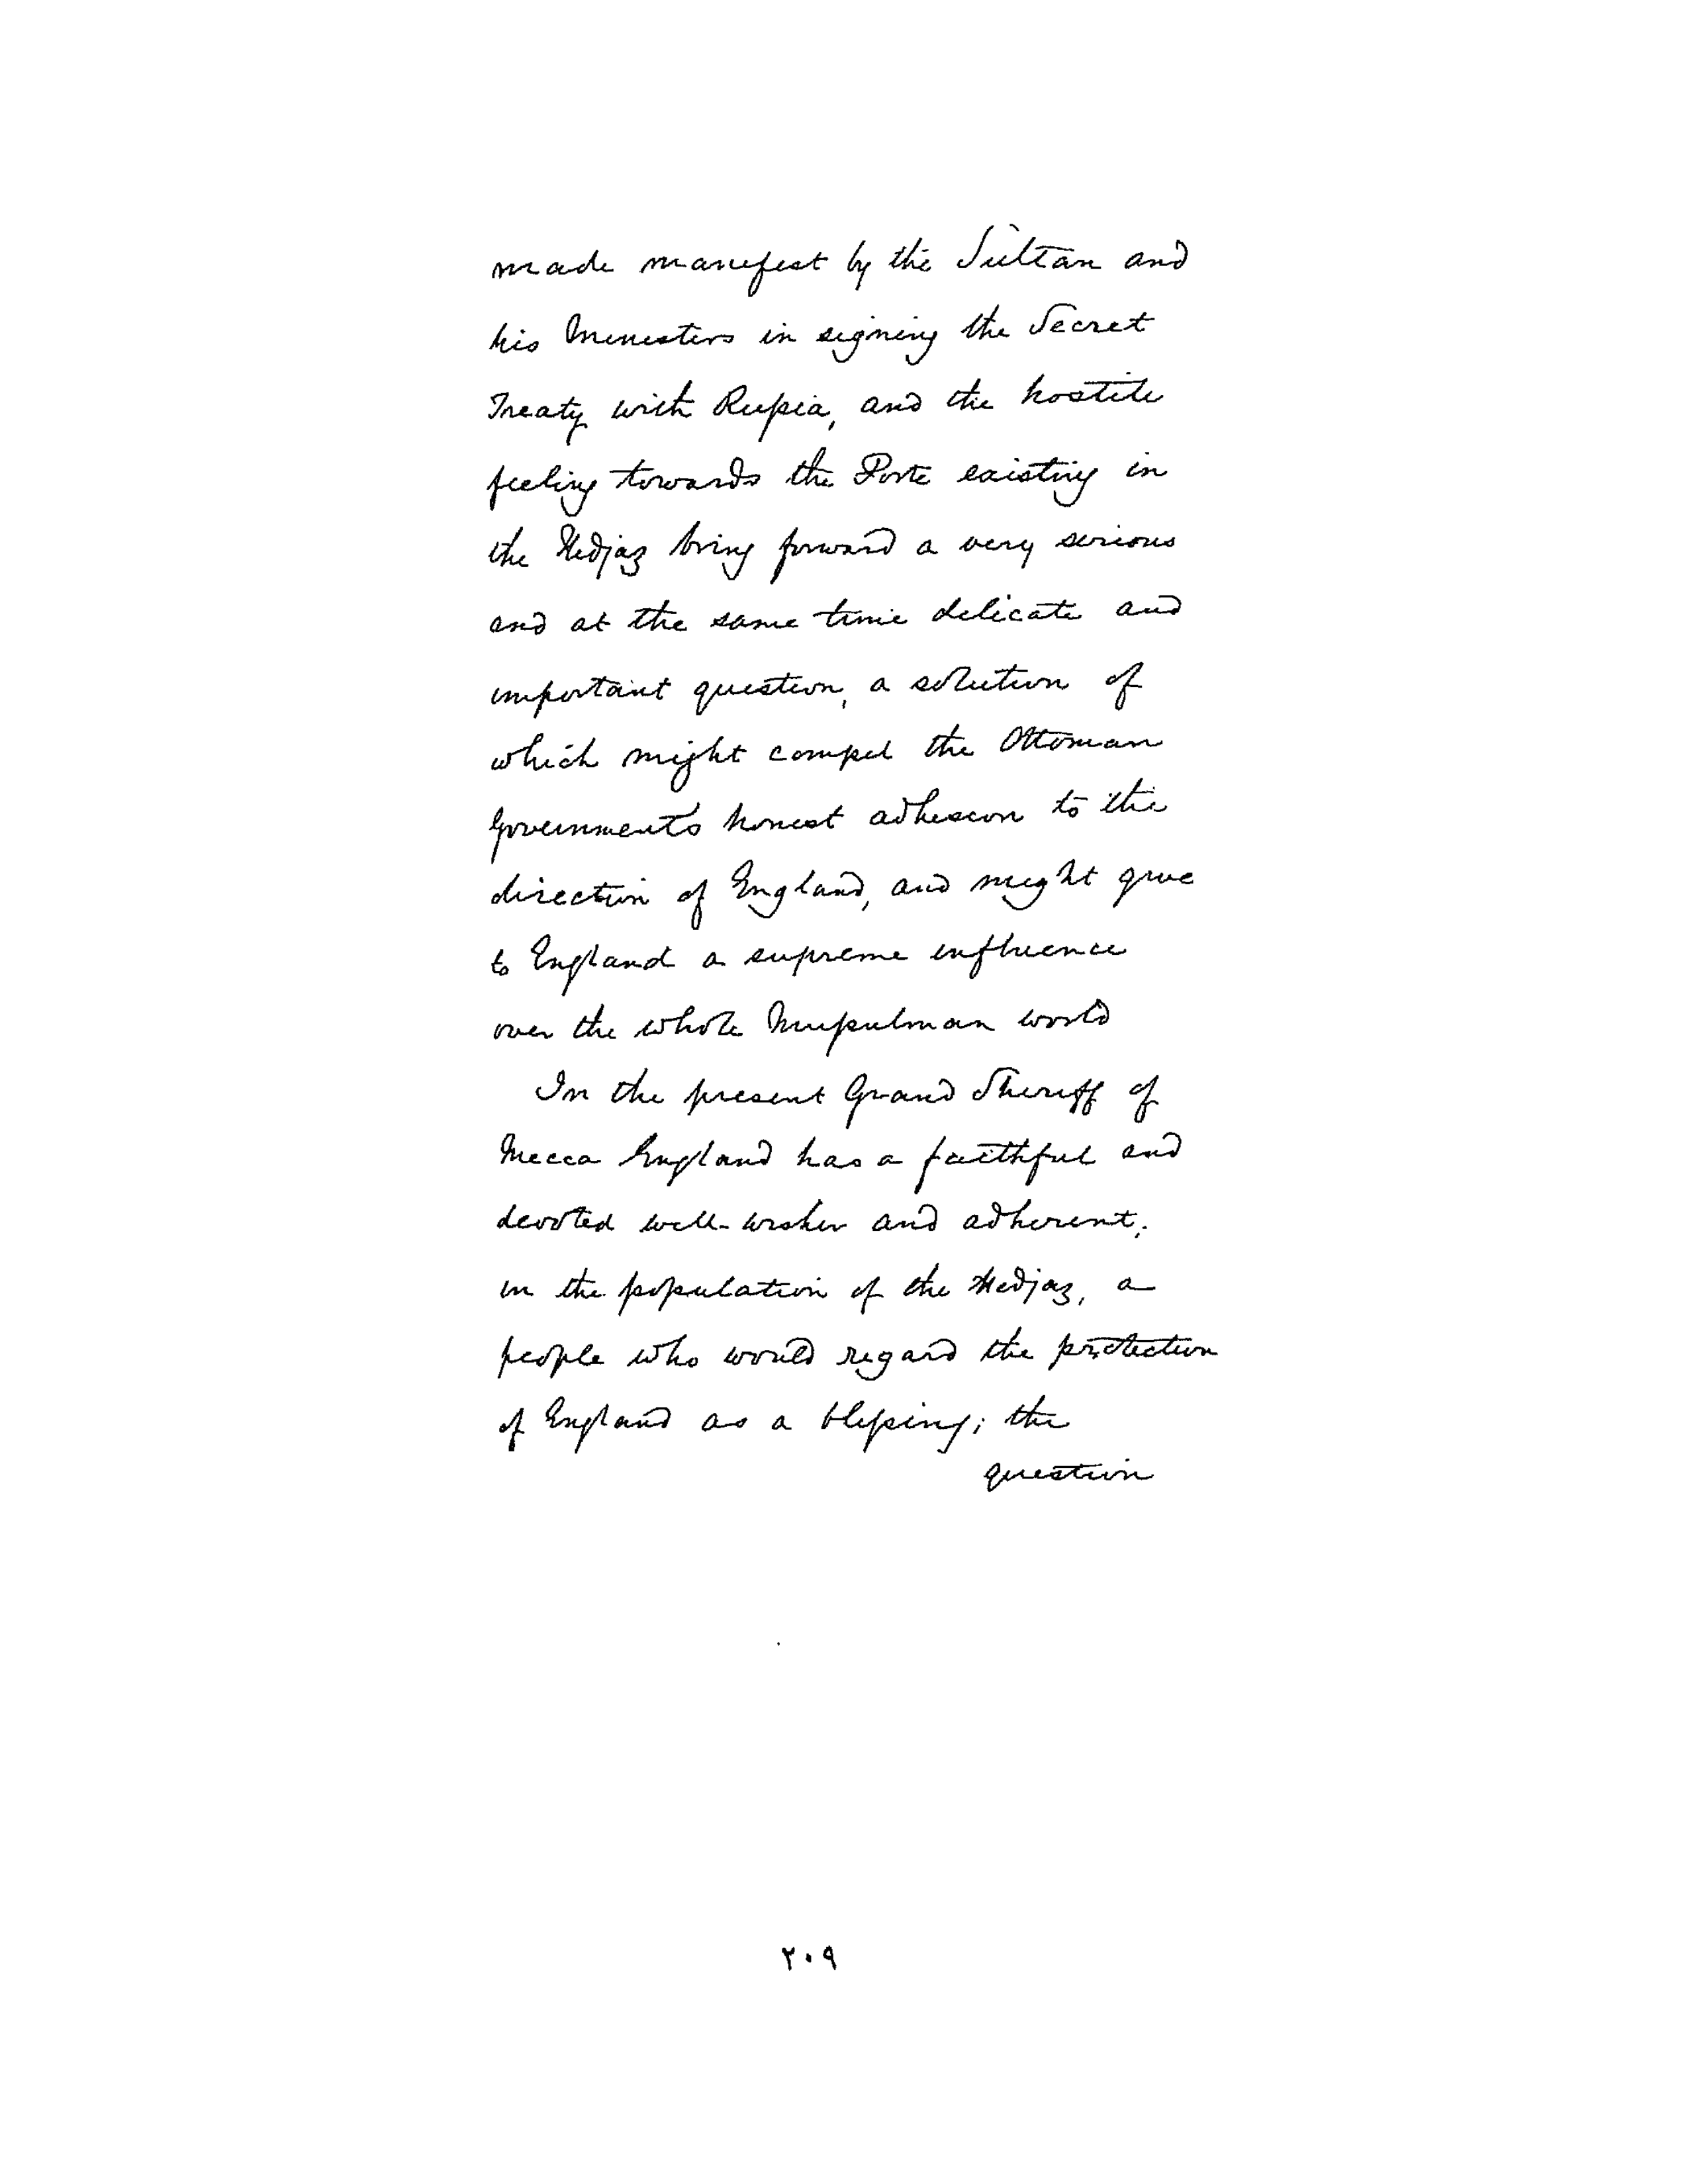 made manifest by the Sultan and
his Ministers in signing the Secret
Treaty with Russia, and the hostile
feeling towards the Porte existing in
the Hedjaz bring forward a very serious
and at the same time delicate and
important question, a solution of
which might compel the Ottoman
Governments honest adhesion to the
direction of England, and might give
to England a supreme influence
over the whole Mussulman world
In the present Grand Sheriff of
Mecca England has a faithful and
devoted well-wisher and adherent;
in the population of the Hedjaz, a
people who would regard the protection
of England as a blessing; the
question
٢٠٩